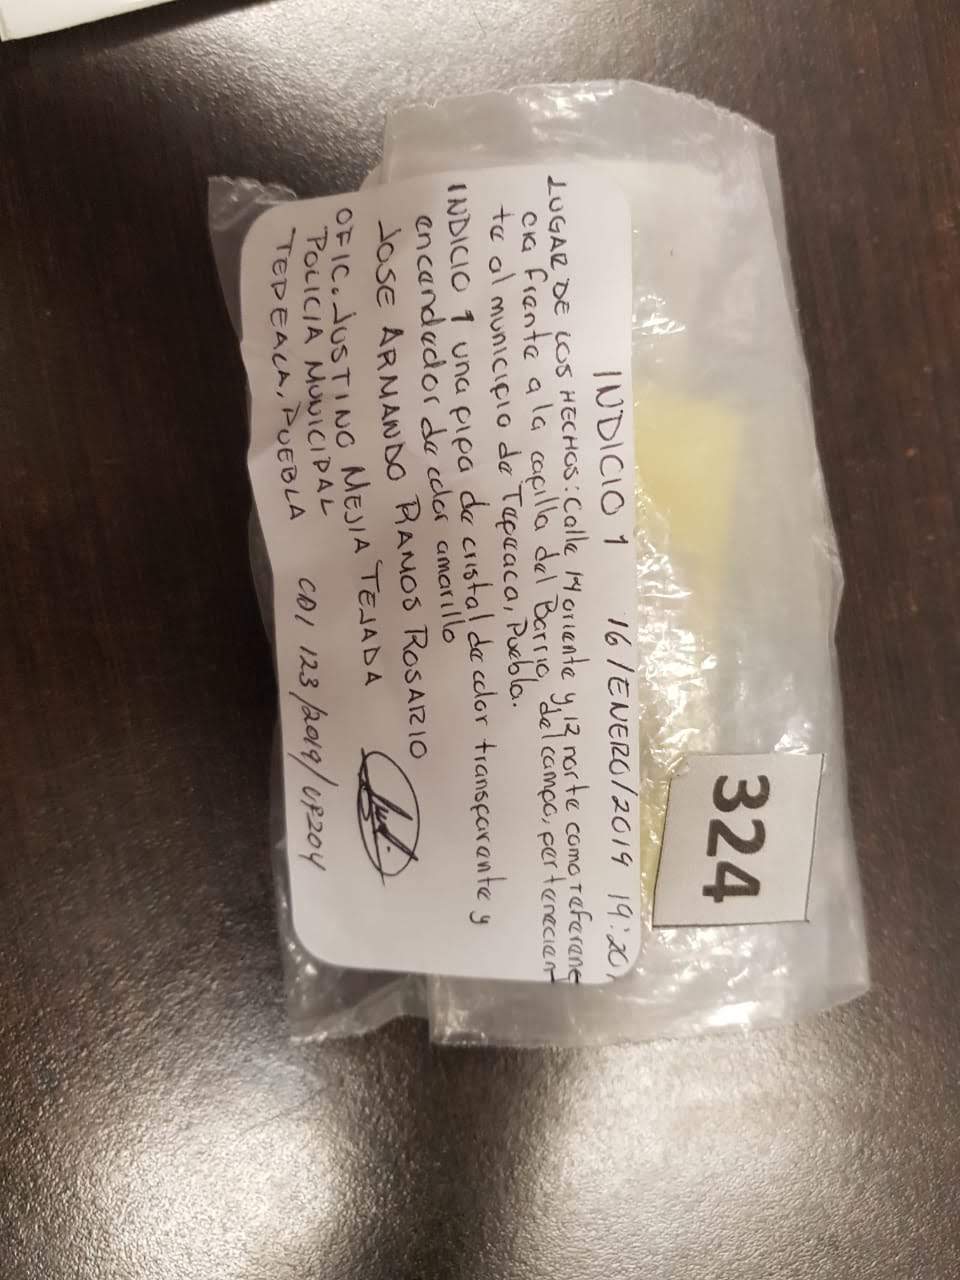 INDICIO 1 16/ENERO/2019 19:20
LUGAR DE LOS HECHOS: Calle 14 oriente y 12 norte como referene
cia frente a la capilla del Barrio, del campo, pertenecien
te al municipio de Tepeaca, Puebla.
INDICIO 1 una pipa de cristal de color transparente y
encendedor de color amarillo
JOSE ARMANDO RAMOS ROSARIO
OFIC. JUSTINO MEJIA TEJADA
POLICIA MUNICIPAL
TEPEACA, PUEBLA CDI 123/2019/UP204
324